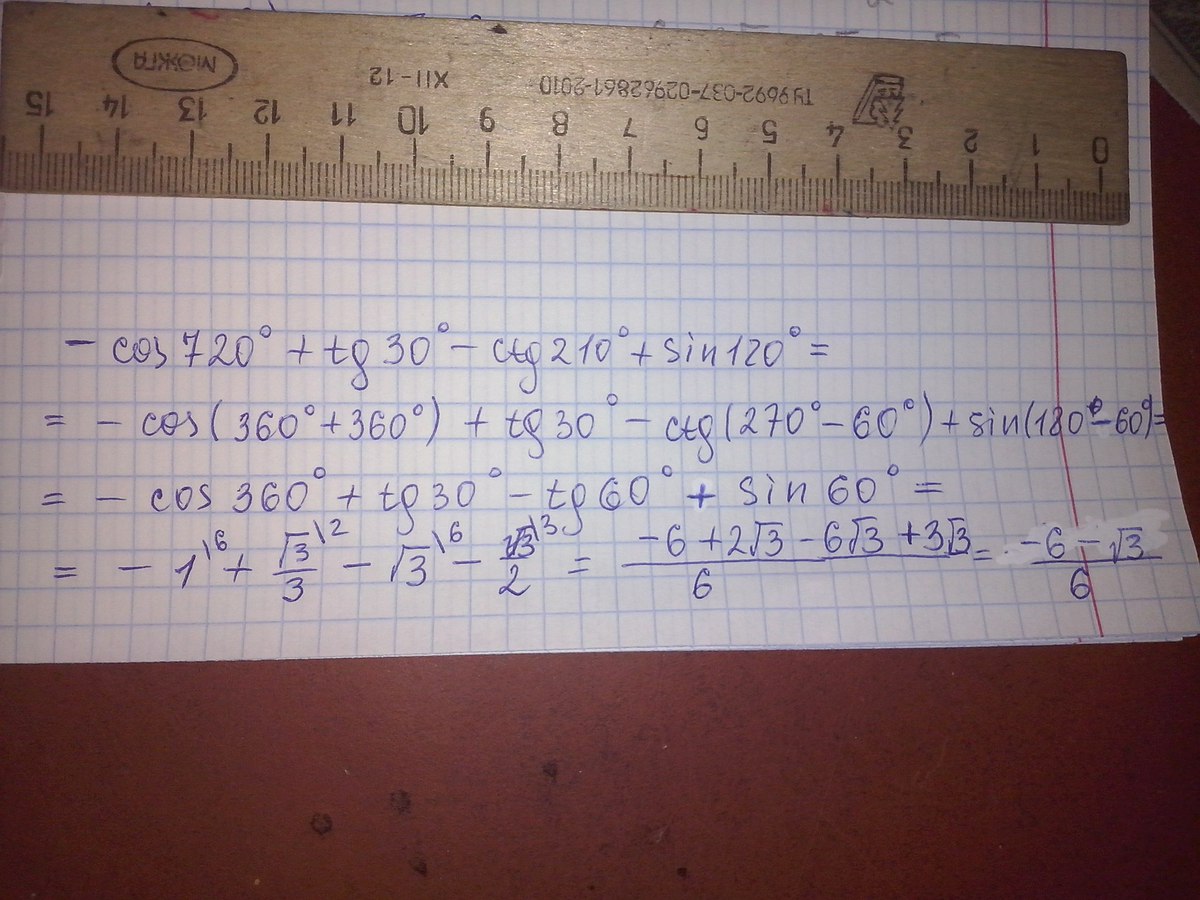 МОЖГА
XII-12
ТУ9692-037-02962861-2010
15 14 13 12 11 10 9 8 7 6 5 4 3 2 1 0
- cos 720° + tg 30° - ctg 210° + sin 120° =
= - cos(360° + 360°) + tg 30° - ctg(270° - 60°) + sin(180° - 60°) =
= - cos 360° + tg 30° - tg 60° + sin 60° =
= - 1\6 + √3\2/3 - √3\6 - √3\3/2 = (-6 + 2√3 - 6√3 + 3√3)/6 = (-6 - √3)/6